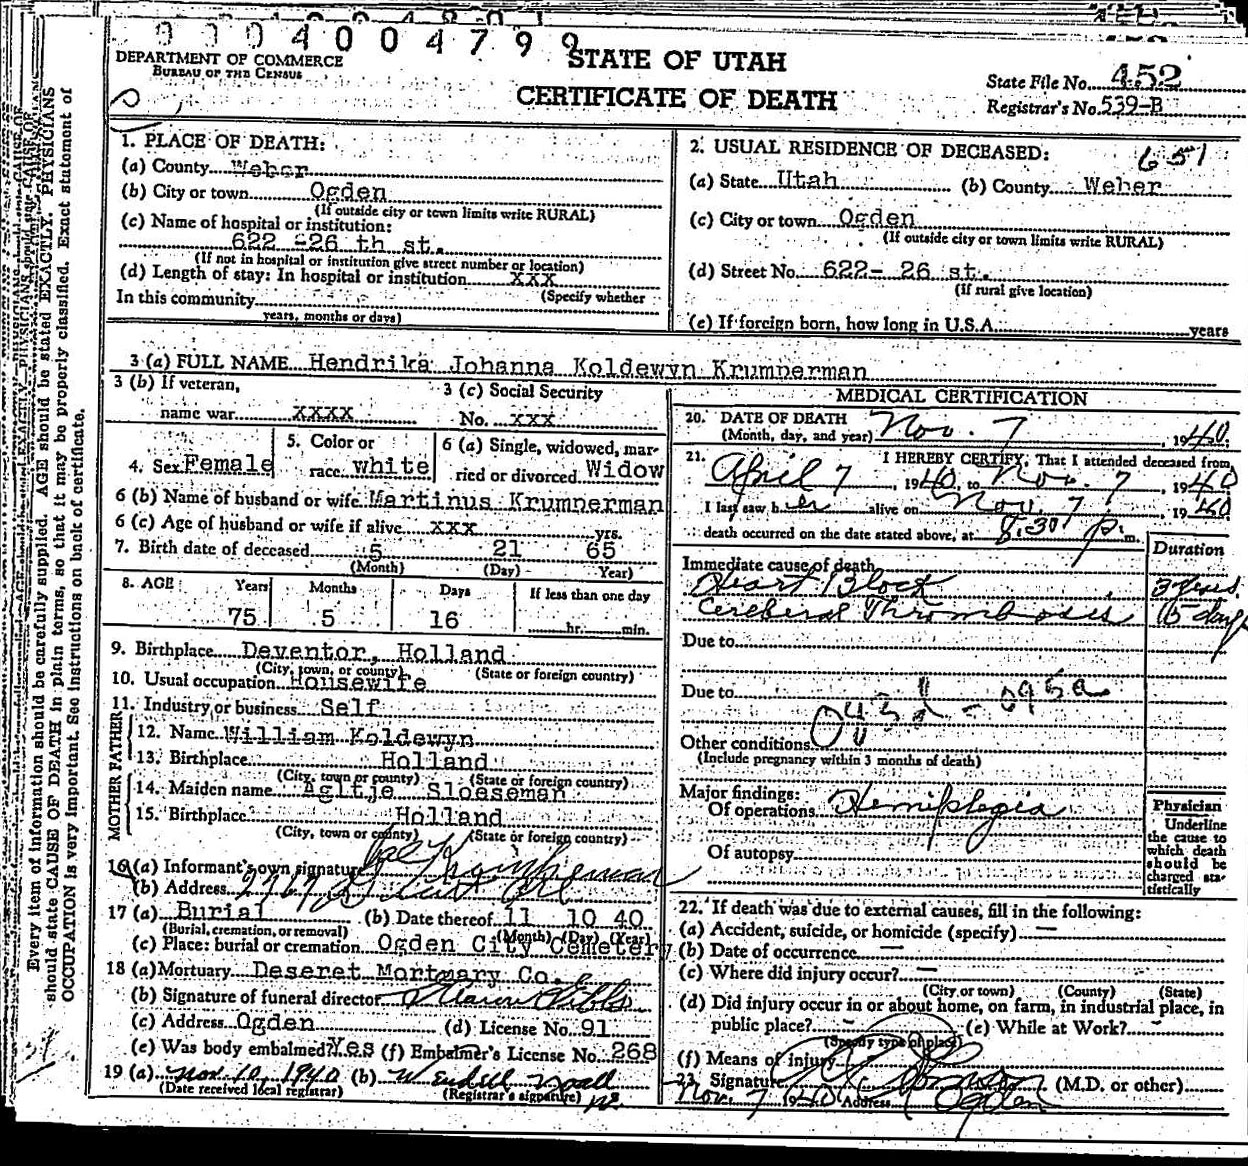 0004004799
STATE OF UTAH
DEPARTMENT OF COMMERCE
BUREAU OF THE CENSUS
CERTIFICATE OF DEATH
State File No. 452
Registrar's No. 539-B
1. PLACE OF DEATH:
(a) County Weber
(b) City or town Ogden
(If outside city or town limits write RURAL)
(c) Name of hospital or institution:
622 -26 th st.
(If not in hospital or institution give street number or location)
(d) Length of stay: In hospital or institution xxx
In this community (Specify whether
years, months or days)
2. USUAL RESIDENCE OF DECEASED: 651
(a) State Utah (b) County Weber
(c) City or town Ogden
(If outside city or town limits write RURAL)
(d) Street No. 622- 26 st.
(If rural give location)
(e) If foreign born, how long in U.S.A. years
3 (a) FULL NAME Hendrika Johanna Koldewyn Krumperman
3 (b) If veteran,
name war xxxx
3 (c) Social Security
No. xxx
4. Sex Female
5. Color or
race white
6 (a) Single, widowed, mar-
ried or divorced Widow
6 (b) Name of husband or wife Martinus Krumperman
6 (c) Age of husband or wife if alive xxx yrs.
7. Birth date of deceased 5 21 65
(Month) (Day) Year)
8. AGE Years Months Days If less than one day
75 5 16 hr. min.
9. Birthplace Deventor, Holland
(City, town, or county) (State or foreign country)
10. Usual occupation Housewife
11. Industry or business Self
FATHER
12. Name William Koldewyn
13. Birthplace Holland
(City, town or county) (State or foreign country)
MOTHER
14. Maiden name Agltje Sloeseman
15. Birthplace Holland
(City, town or county) (State or foreign country)
16 (a) Informant's own signature Krumperman
(b) Address
17 (a) Burial (b) Date thereof 11 10 40
(Burial, cremation, or removal) (Month) (Day) (Year)
(c) Place: burial or cremation Ogden City Cemetery
18 (a) Mortuary Deseret Mortuary Co.
(b) Signature of funeral director
(c) Address Ogden (d) License No. 91
(e) Was body embalmed? Yes (f) Embalmer's License No. 268
19 (a) Nov. 10, 1940 (b) Wendell Noall
(Date received local registrar) (Registrar's signature)
MEDICAL CERTIFICATION
20. DATE OF DEATH
(Month, day, and year) Nov. 7, 1940
21. I HEREBY CERTIFY, That I attended deceased from
April 7, 1940, to Nov. 7, 1940
I last saw her alive on Nov. 7, 1940
death occurred on the date stated above, at 8:30 p. m.
Duration
Immediate cause of death
Heart Block 3 years
Cerebral Thromboses 15 days
Due to
Due to
Other conditions
(Include pregnancy within 3 months of death)
Major findings:
Of operations Hemiplegia
Of autopsy
Physician
Underline
the cause to
which death
should be
charged sta-
tistically
22. If death was due to external causes, fill in the following:
(a) Accident, suicide, or homicide (specify) —
(b) Date of occurrence —
(c) Where did injury occur? —
(City or town) (County) (State)
(d) Did injury occur in or about home, on farm, in industrial place, in
public place? - (e) While at Work? -
(Specify type of place)
(f) Means of injury
23. Signature (M.D. or other)
Nov. 7 1940 Address Ogden
Every item of information should be carefully supplied. AGE should be stated EXACTLY. PHYSICIANS
should state CAUSE OF DEATH in plain terms, so that it may be properly classified. Exact statement of
OCCUPATION is very important. See instructions on back of certificate.